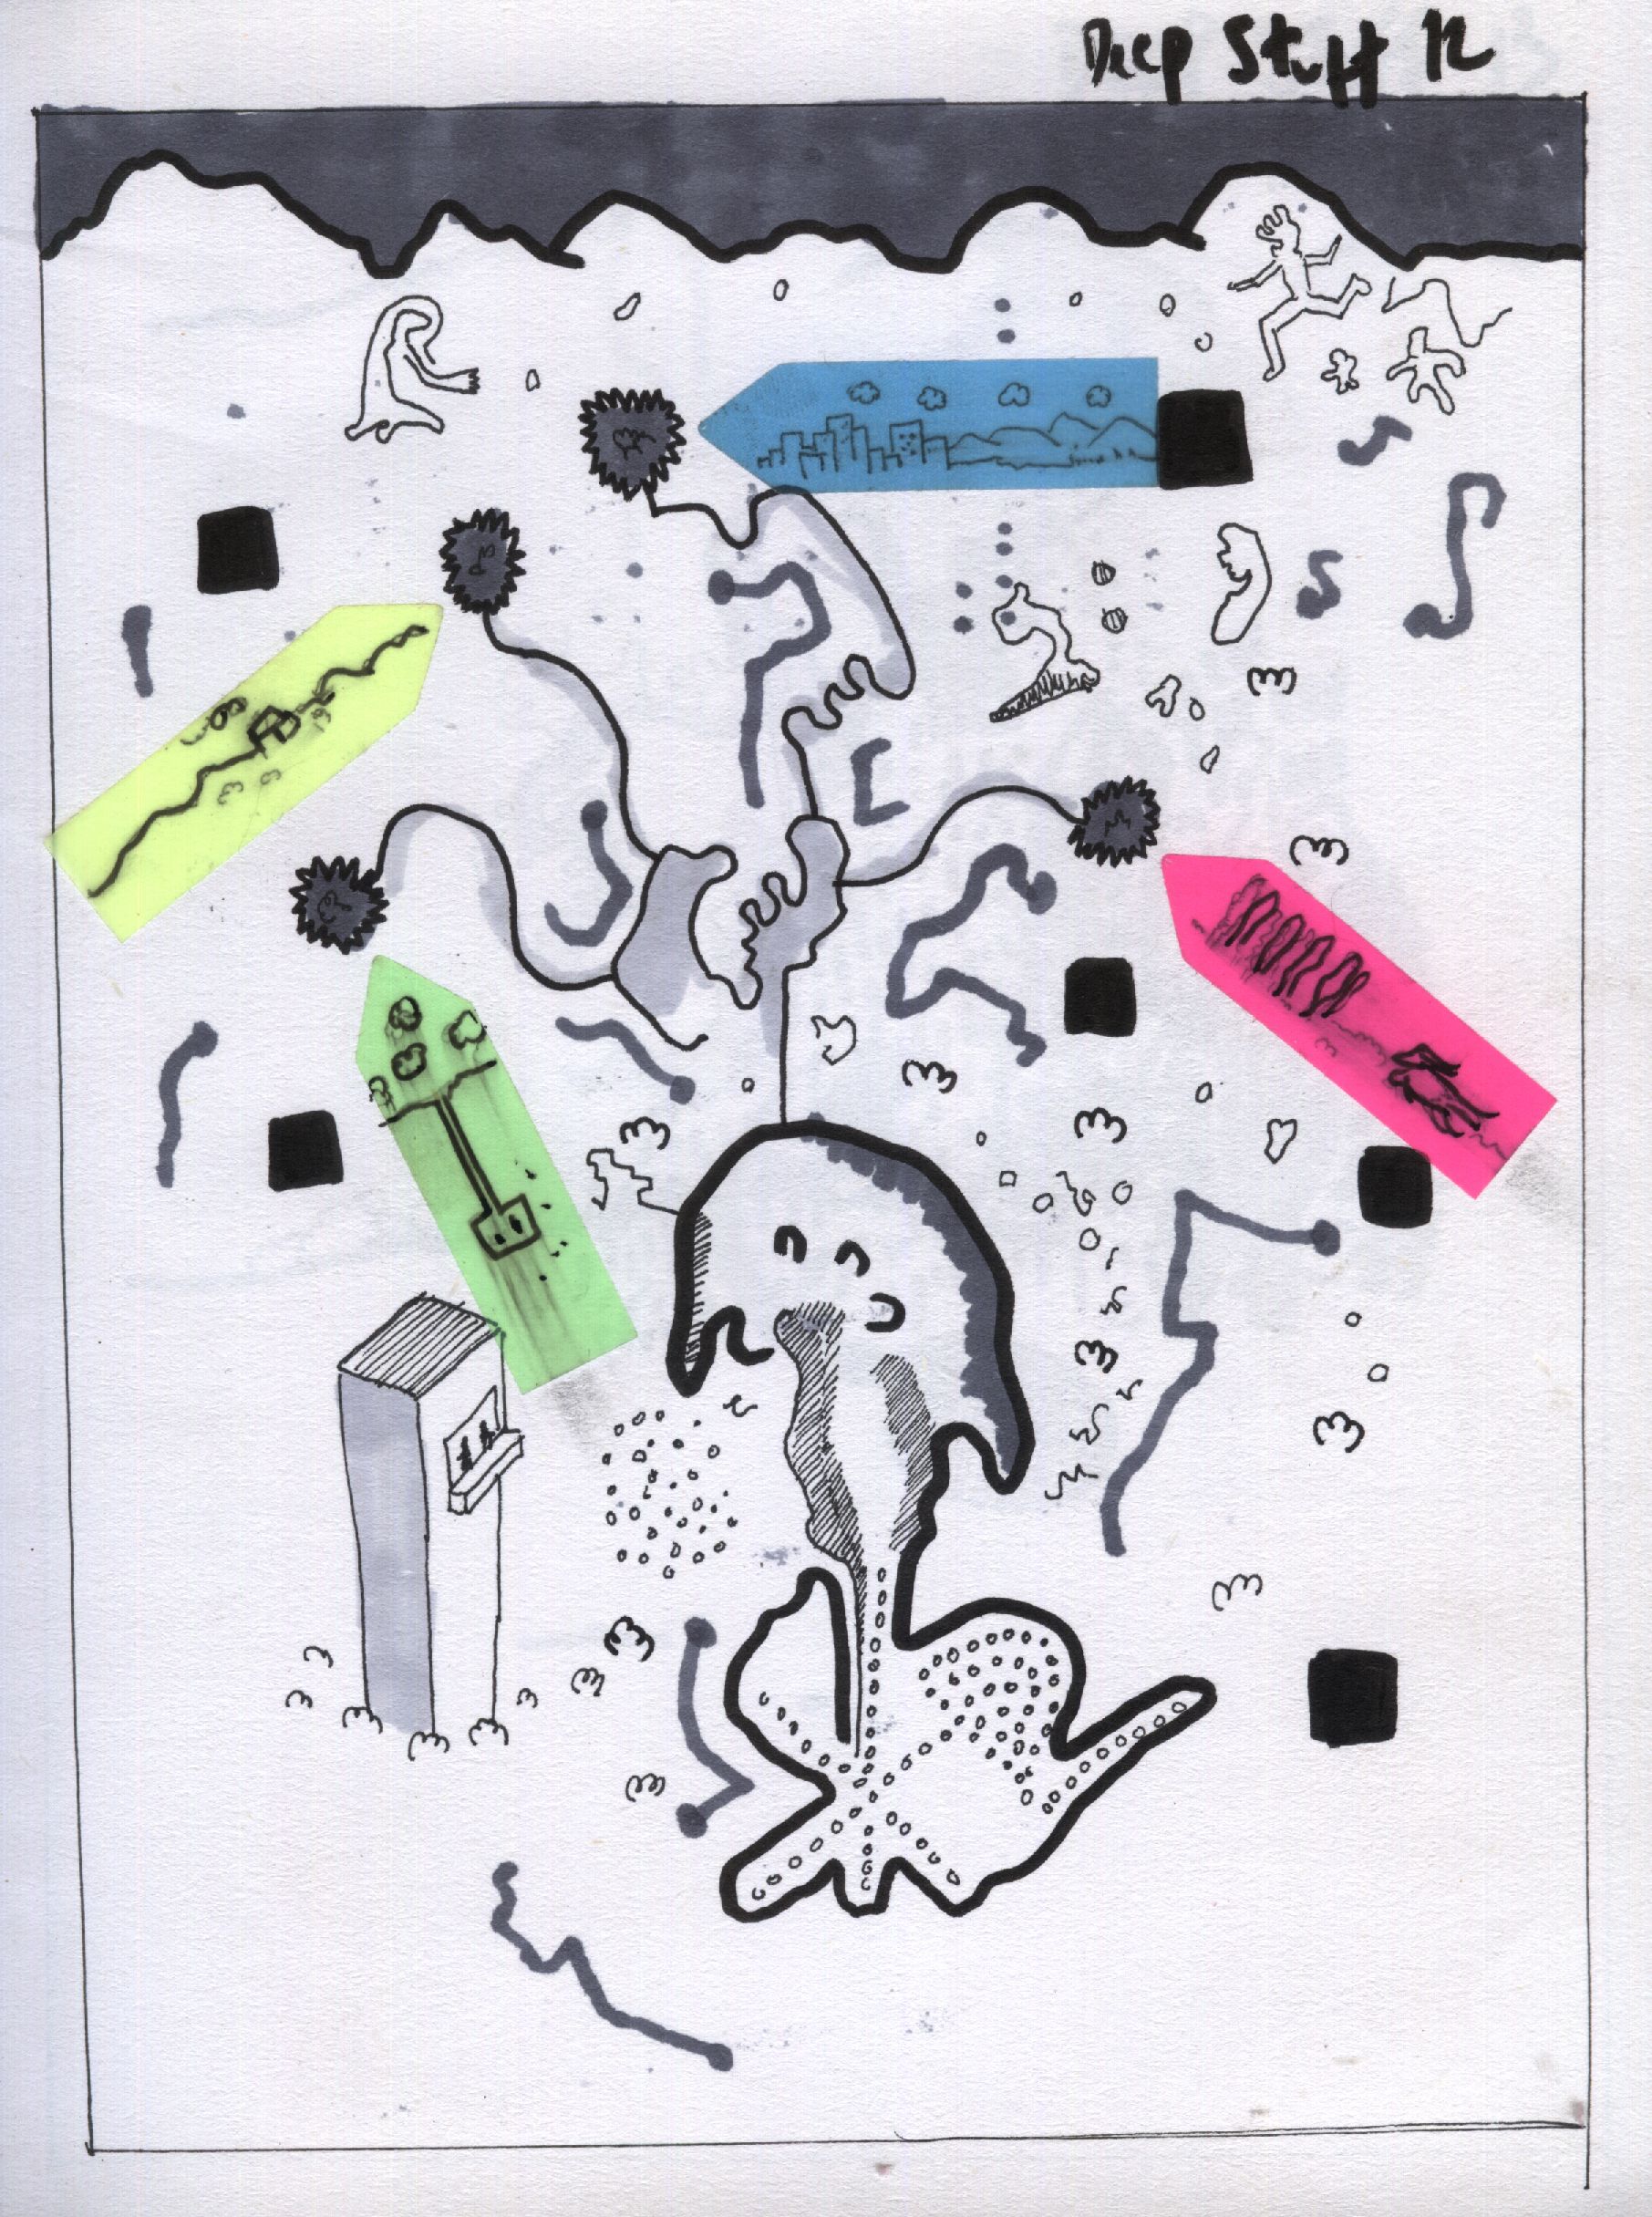 Deep Stuff 12